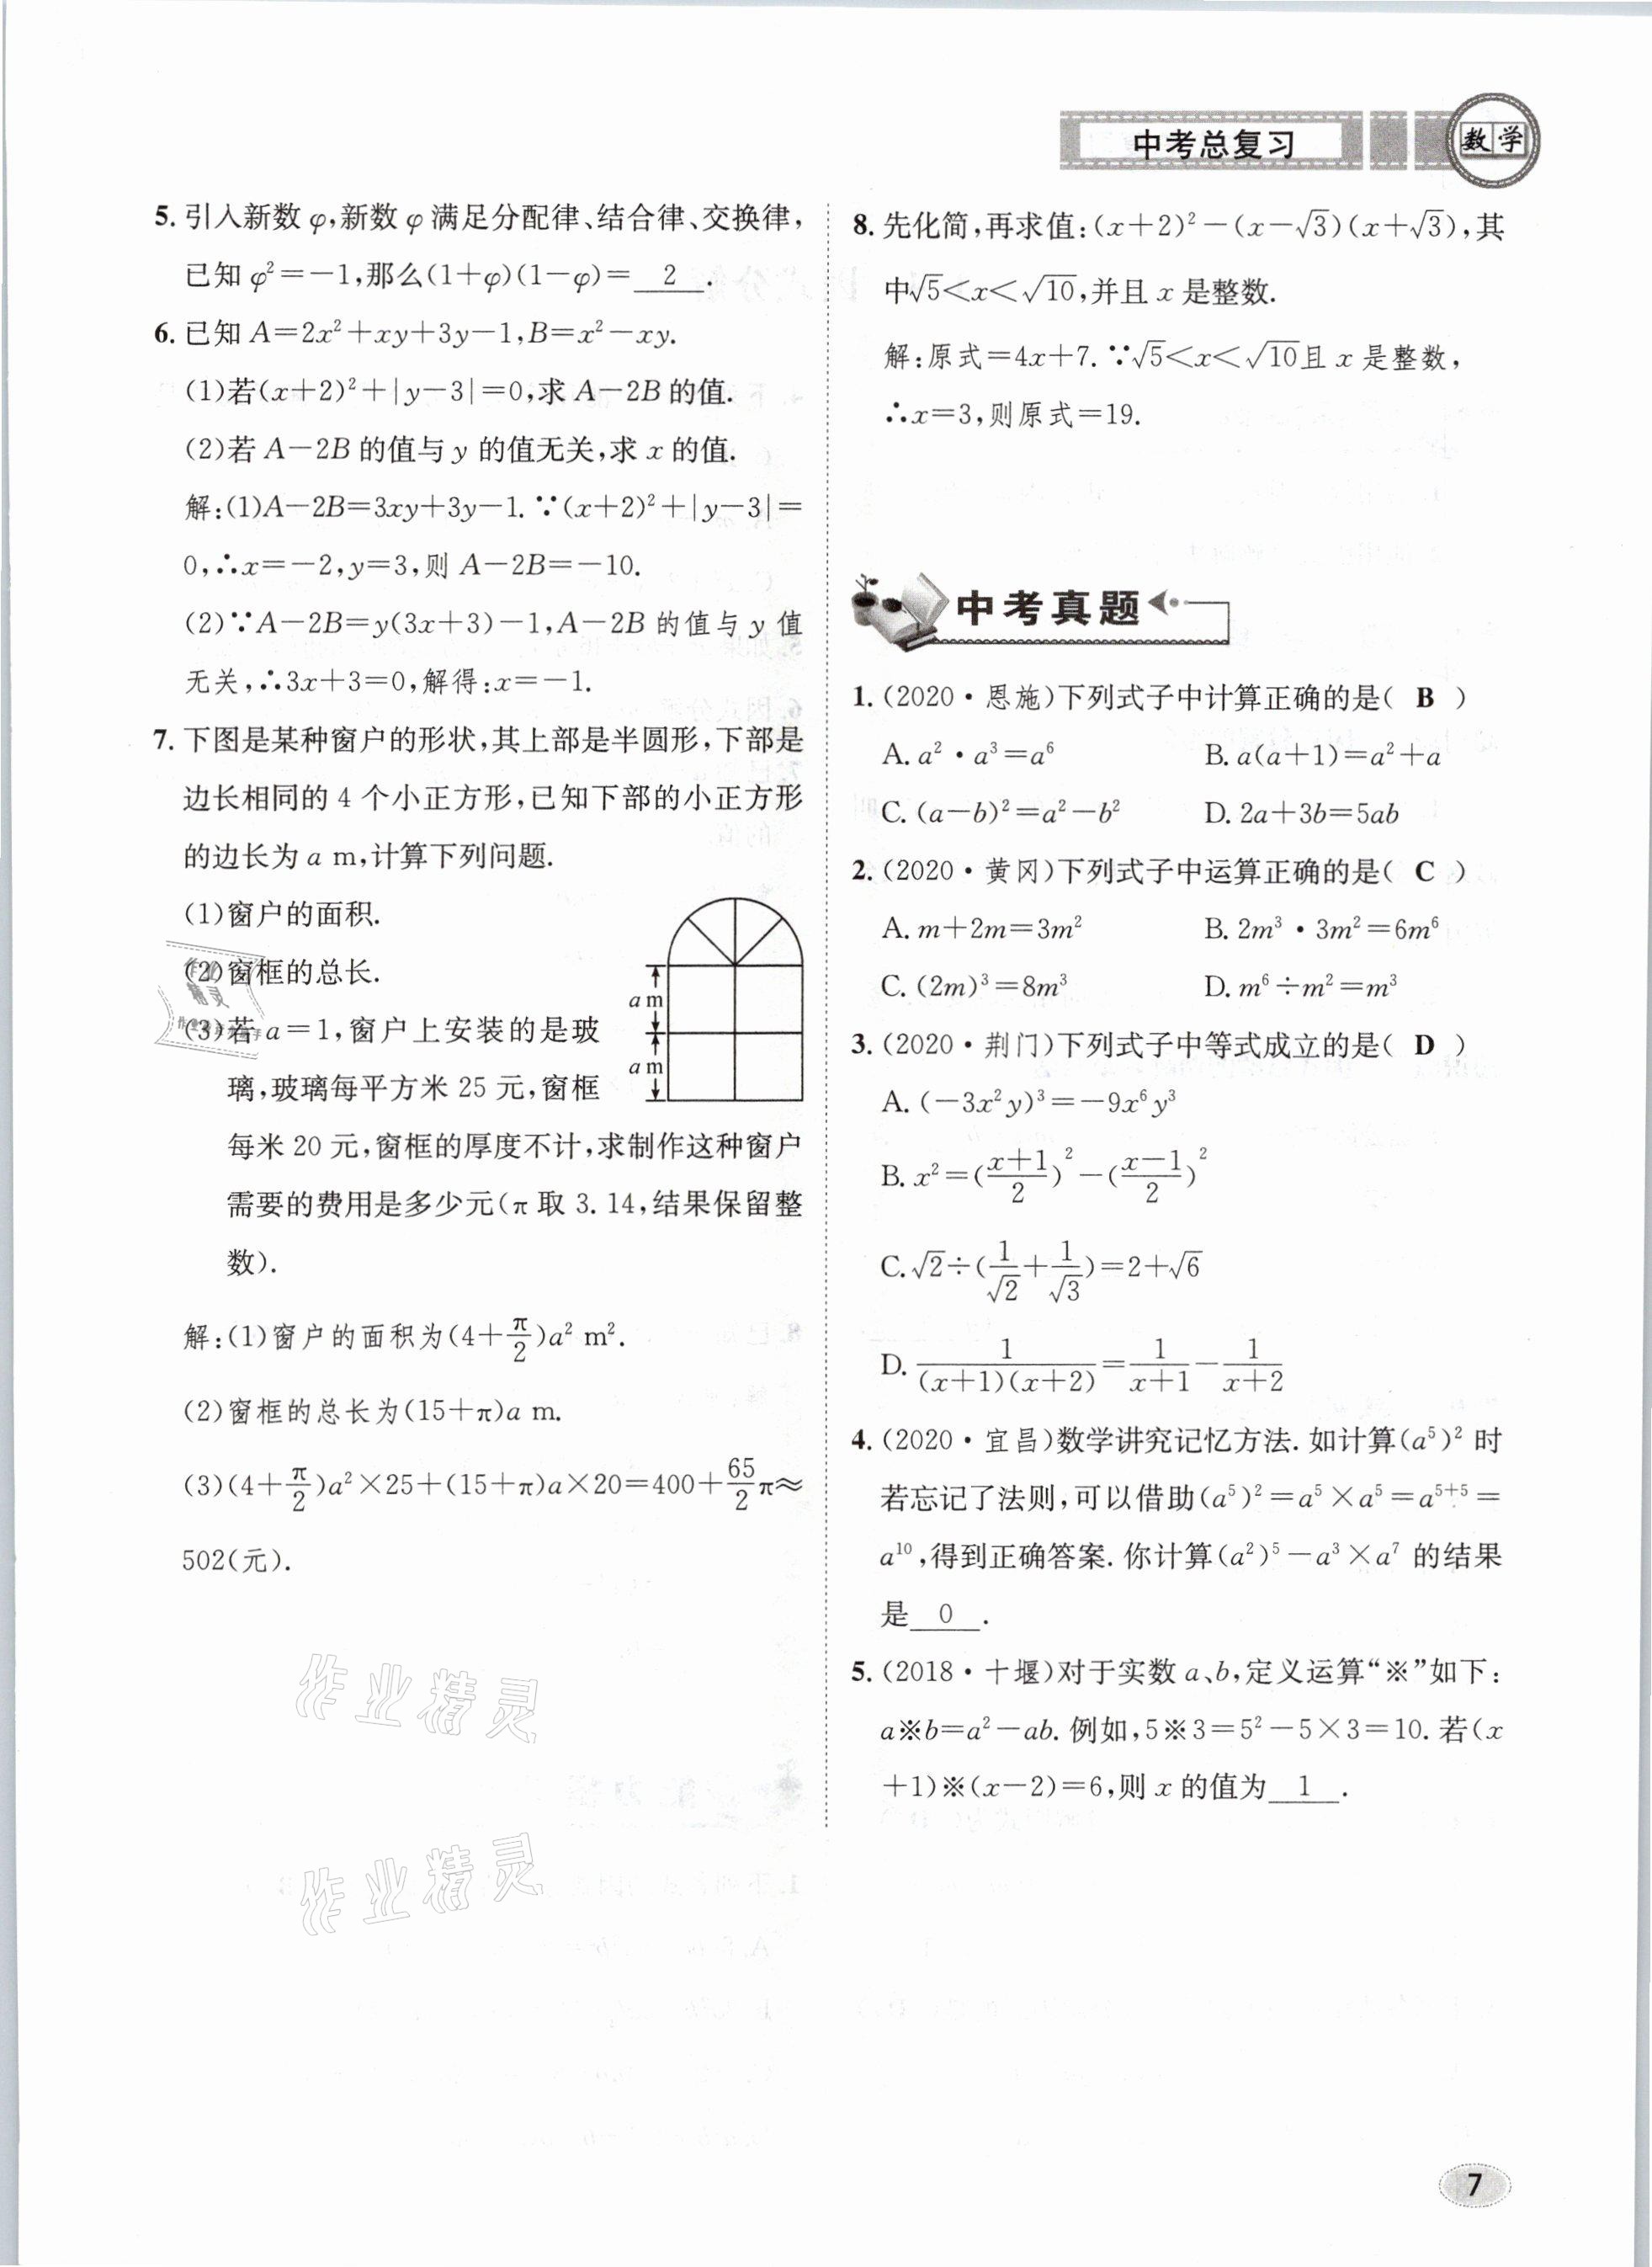 中考总复习
数学
5. 引入新数 φ,新数 φ 满足分配律、结合律、交换律,
已知 φ²=-1,那么(1+φ)(1-φ)= 2 .
6. 已知 A=2x²+xy+3y-1,B=x²-xy.
(1)若(x+2)²+|y-3|=0,求 A-2B 的值.
(2)若 A-2B 的值与 y 的值无关,求 x 的值.
解:(1)A-2B=3xy+3y-1.∵(x+2)²+|y-3|=
0,∴x=-2,y=3,则 A-2B=-10.
(2)∵A-2B=y(3x+3)-1,A-2B 的值与 y 值
无关,∴3x+3=0,解得:x=-1.
7. 下图是某种窗户的形状,其上部是半圆形,下部是
边长相同的 4 个小正方形,已知下部的小正方形
的边长为 a m,计算下列问题.
(1)窗户的面积.
(2)窗框的总长.
(3)若 a=1,窗户上安装的是玻
璃,玻璃每平方米 25 元,窗框
每米 20 元,窗框的厚度不计,求制作这种窗户
需要的费用是多少元(π 取 3.14,结果保留整
数).
a m
a m
解:(1)窗户的面积为(4+π/2)a² m².
(2)窗框的总长为(15+π)a m.
(3)(4+π/2)a²×25+(15+π)a×20=400+65/2π≈
502(元).
作业精灵
作业精灵
作业
精灵
8. 先化简,再求值:(x+2)²-(x-√3)(x+√3),其
中√5<x<√10,并且 x 是整数.
解:原式=4x+7.∵√5<x<√10且 x 是整数,
∴x=3,则原式=19.
中考真题
1. (2020·恩施)下列式子中计算正确的是( B )
A. a²·a³=a⁶ B. a(a+1)=a²+a
C. (a-b)²=a²-b² D. 2a+3b=5ab
2. (2020·黄冈)下列式子中运算正确的是( C )
A. m+2m=3m² B. 2m³·3m²=6m⁶
C. (2m)³=8m³ D. m⁶÷m²=m³
3. (2020·荆门)下列式子中等式成立的是( D )
A. (-3x²y)³=-9x⁶y³
B. x²=((x+1)/2)²-((x-1)/2)²
C. √2÷(1/√2+1/√3)=2+√6
D. 1/((x+1)(x+2))=1/(x+1)-1/(x+2)
4. (2020·宜昌)数学讲究记忆方法.如计算(a⁵)² 时
若忘记了法则,可以借助(a⁵)²=a⁵×a⁵=a⁵⁺⁵=
a¹⁰,得到正确答案.你计算(a²)⁵-a³×a⁷ 的结果
是 0 .
5. (2018·十堰)对于实数 a、b,定义运算“※”如下:
a※b=a²-ab.例如,5※3=5²-5×3=10.若(x
+1)※(x-2)=6,则 x 的值为 1 .
7